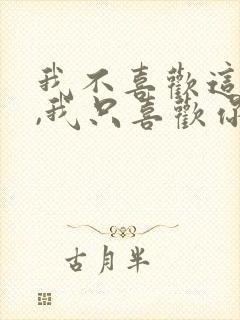 我不喜歡這
,我只喜歡你
古月半